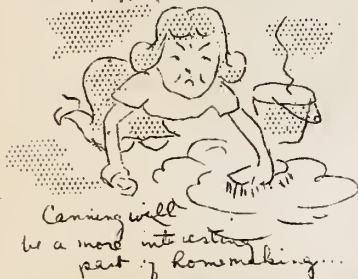 Canning will
be a more interesting
part of homemaking...